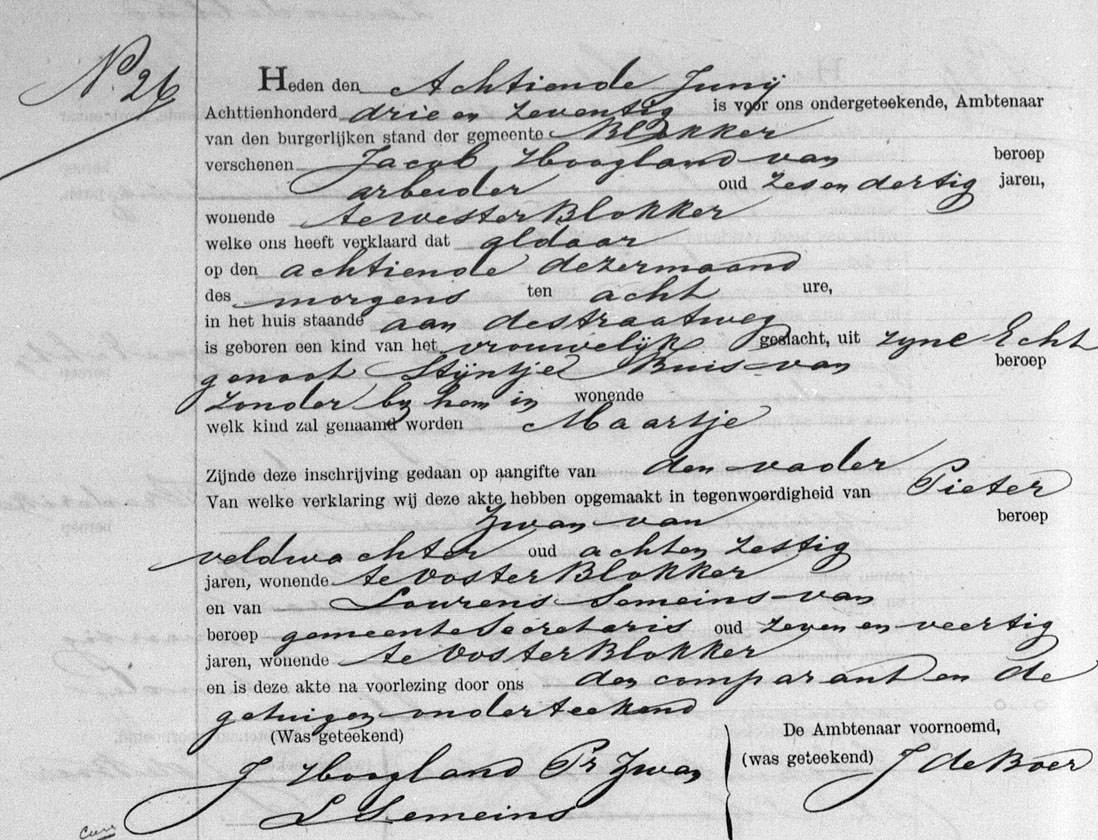 No. 26
Heden den Achtiende Junij
Achttienhonderd drie en zeventig is voor ons ondergeteekende, Ambtenaar
van den burgerlijken stand der gemeente Blokker
verschenen Jacob Hoogland van beroep
arbeider oud zes en dertig jaren,
wonende te Westerblokker
welke ons heeft verklaard dat aldaar
op den achtiende dezer maand
des morgens ten acht ure,
in het huis staande aan de straatweg
is geboren een kind van het vrouwelijk geslacht, uit zyne Echt
genoot Stijntje Buis van beroep
zonder by hem in wonende
welk kind zal genaamd worden Maartje
Zijnde deze inschrijving gedaan op aangifte van den vader
Van welke verklaring wij deze akte hebben opgemaakt in tegenwoordigheid van Pieter
Zwan van beroep
veldwachter oud acht en zestig
jaren, wonende te Oosterblokker
en van Lourens Semeins van
beroep gemeente Secretaris oud zeven en veertig
jaren, wonende te Oosterblokker
en is deze akte na voorlezing door ons den comparant en de
getuigen onderteekend
(Was geteekend) De Ambtenaar voornoemd,
J Hoogland Pr Zwan (was geteekend) J de Boer
L Semeins